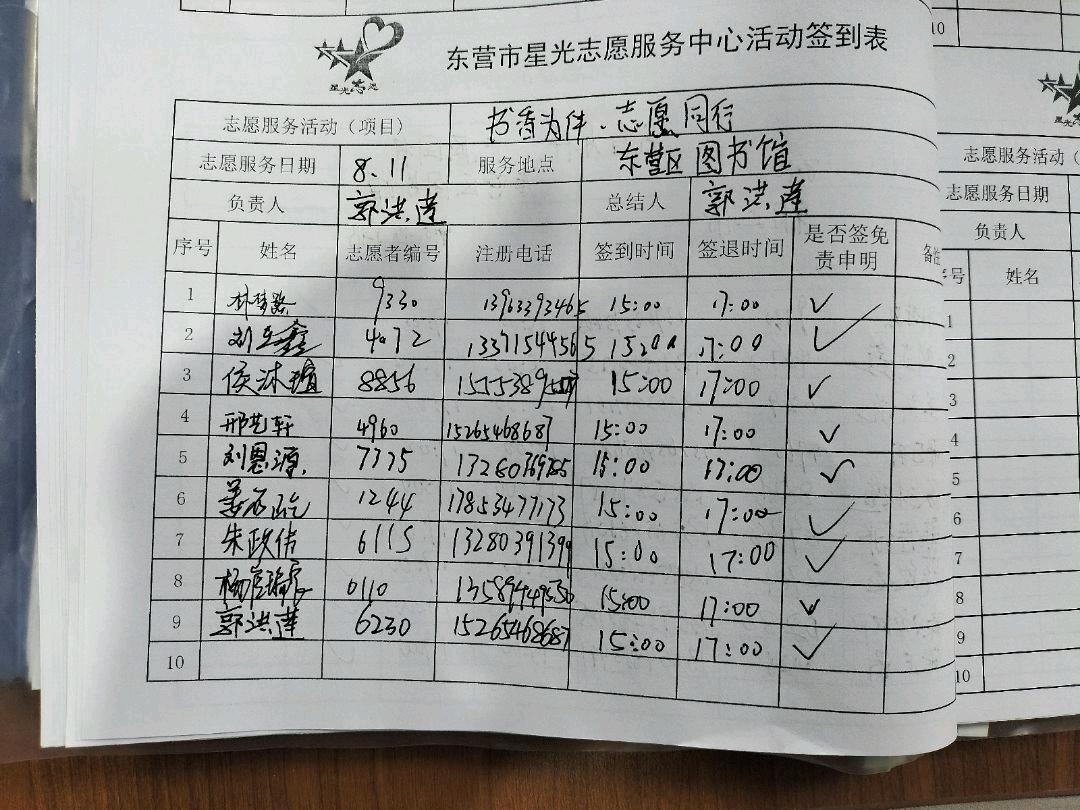 10
星光志愿
东营市星光志愿服务中心活动签到表
志愿服务活动（项目） 书香为伴、志愿同行
志愿服务日期 8.11 服务地点 东营区图书馆
负责人 郭洪莲 总结人 郭洪莲
序号 姓名 志愿者编号 注册电话 签到时间 签退时间 是否签免责申明 备注
1 林梦璐 9330 13963393465 15:00 17:00 ✓
2 鑫 4072 13371544565 15:00 17:00 ✓
3 侯沐 8856 15:00 17:00 ✓
4 邢艺轩 4960 15265468687 15:00 17:00 ✓
5 刘恩源 7335 15:00 17:00 ✓
6 姜 1244 17853477173 15:00 17:00 ✓
7 朱政伟 6115 13280391399 15:00 17:00 ✓
8 杨 0110 15:00 17:00 ✓
9 郭洪莲 6230 15265468687 15:00 17:00 ✓
10
志愿服务活动（
志愿服务日期
负责人
序号 姓名
1
2
3
4
5
6
7
8
9
10